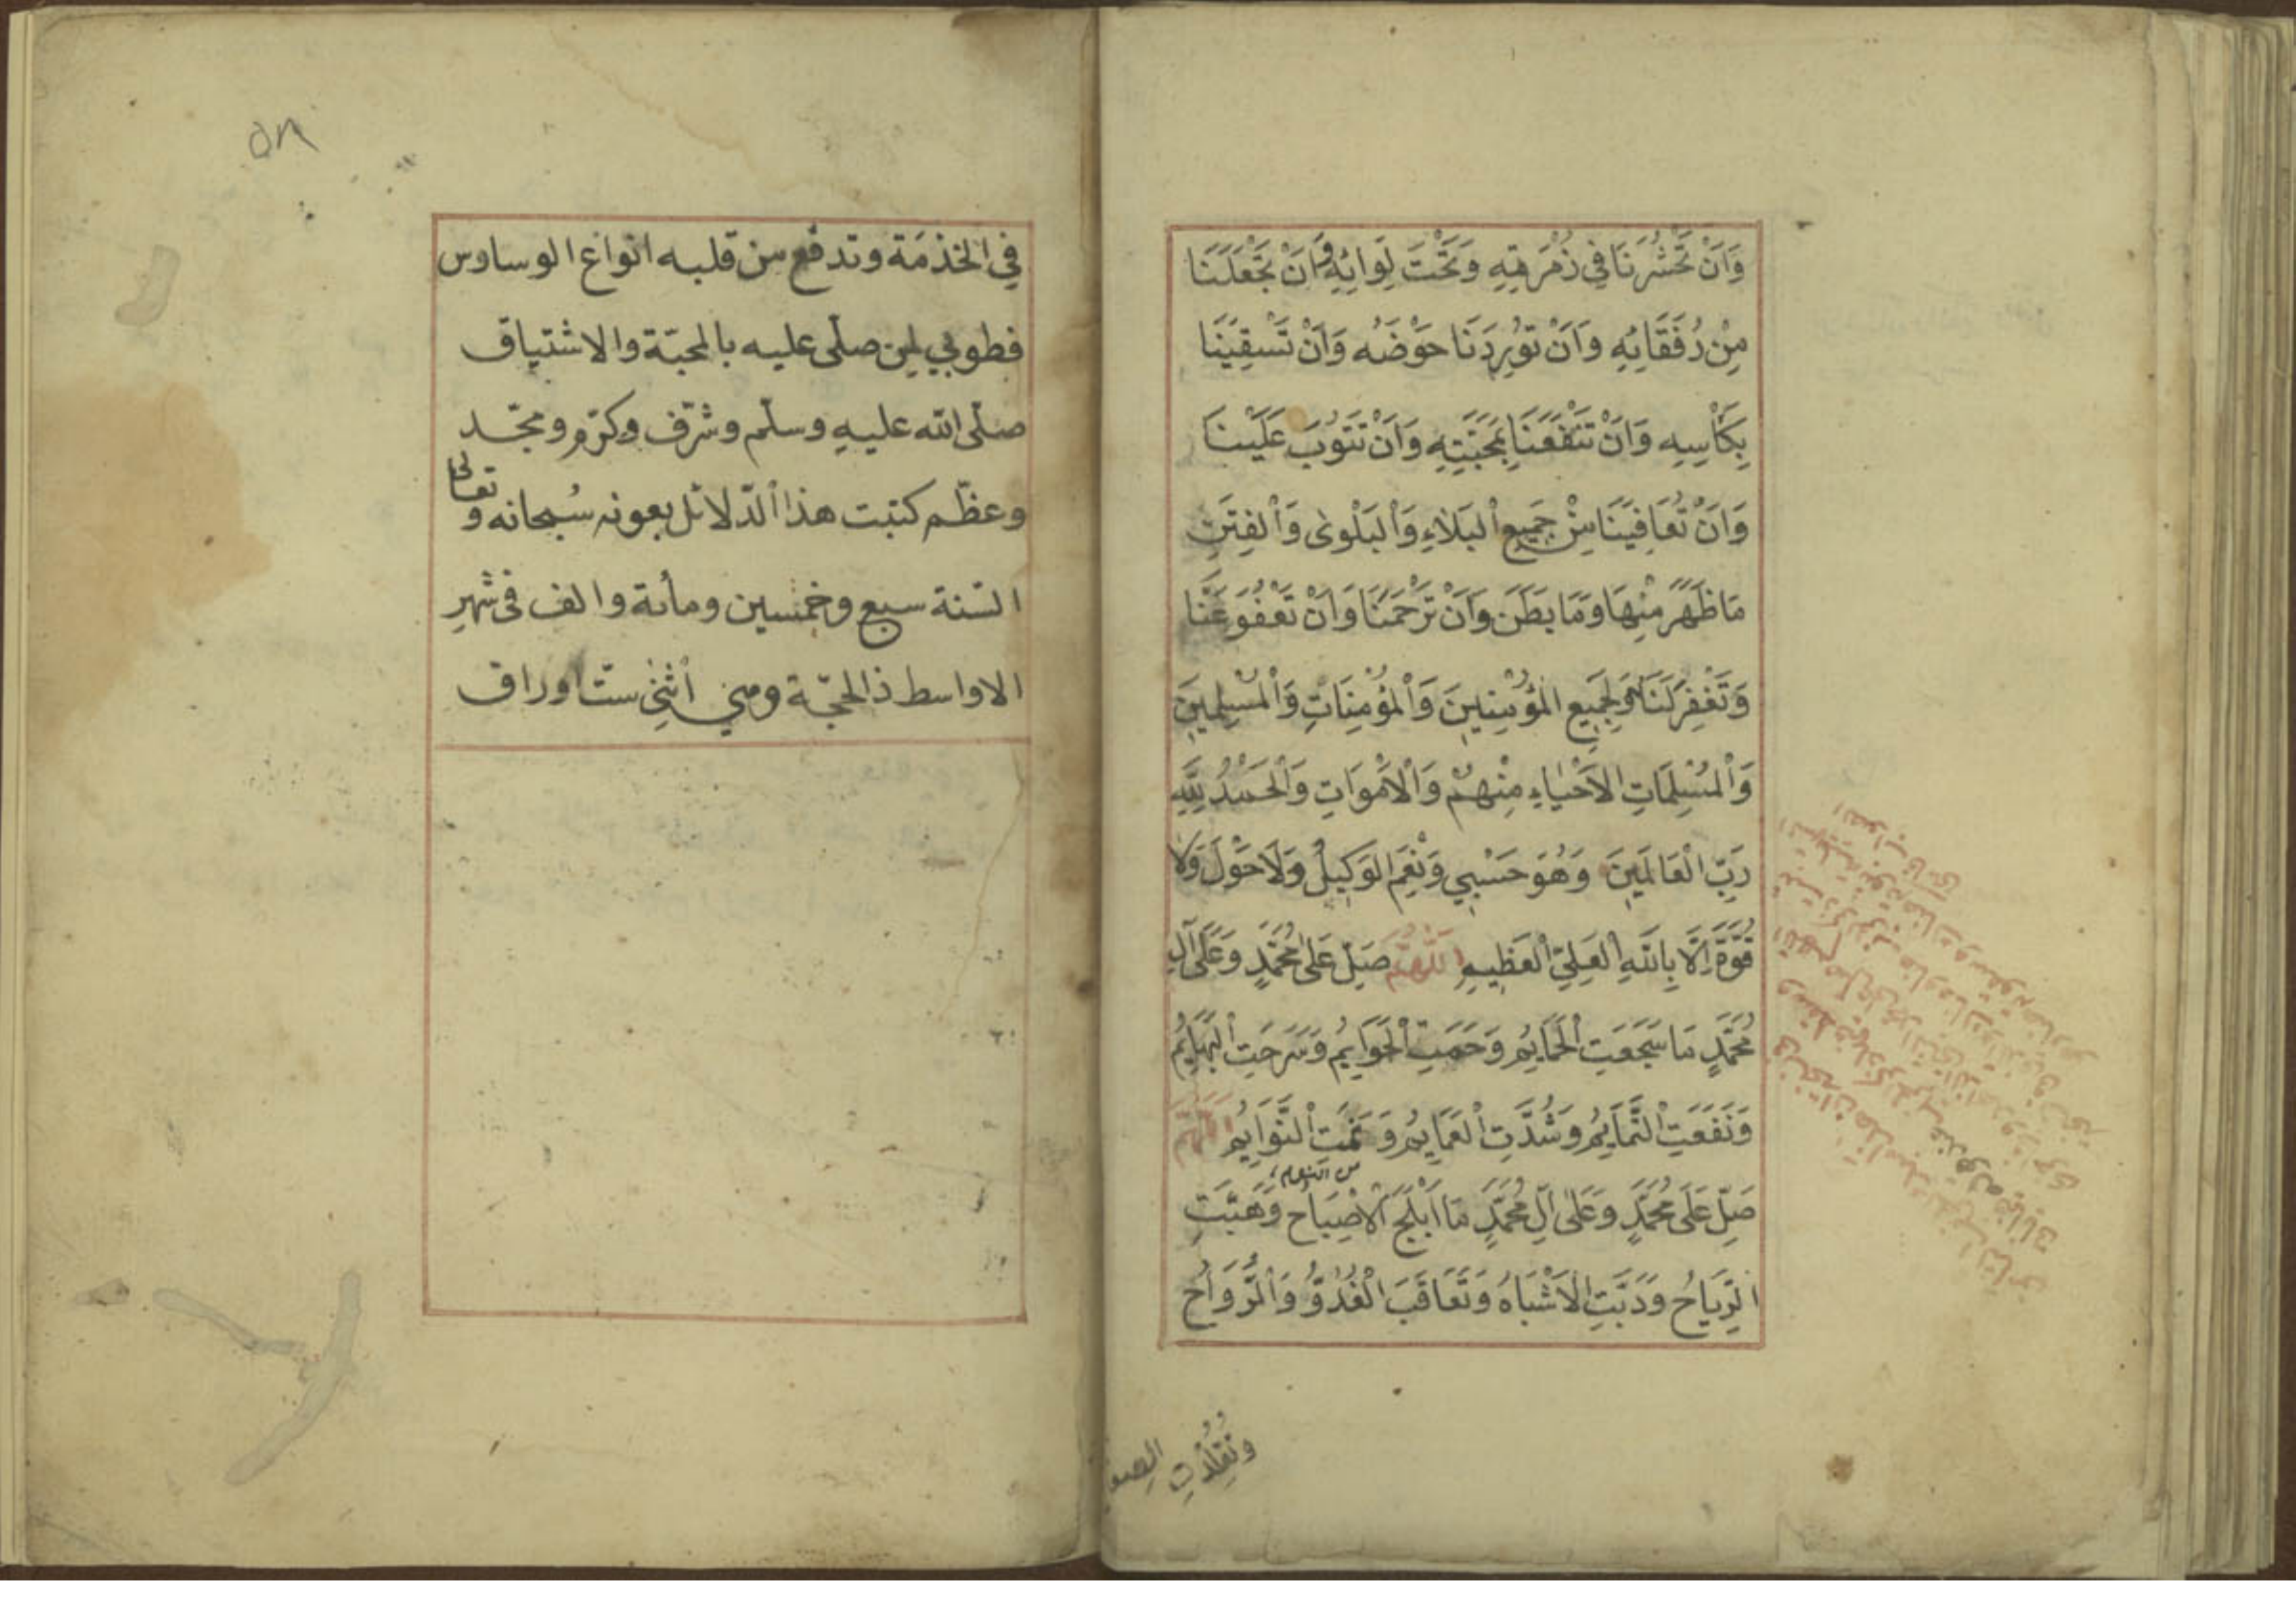 وَاَنْ تَحْشُرَنَا فِي زُمْرَتِهِ وَتَحْتَ لِوَائِهِ وَاَنْ تَجْعَلَنَا
مِنْ رُفَقَائِهِ وَاَنْ تُورِدَنَا حَوْضَهُ وَاَنْ تَسْقِيَنَا
بِكَأْسِهِ وَاَنْ تَنْفَعَنَا بِمَحَبَّتِهِ وَاَنْ تَتُوبَ عَلَيْنَا
وَاَنْ تُعَافِيَنَا مِنْ جَمِيعِ الْبَلَاءِ وَالْبَلْوٰى وَالْفِتَنِ
مَا ظَهَرَ مِنْهَا وَمَا بَطَنَ وَاَنْ تَرْحَمَنَا وَاَنْ تَعْفُوَ عَنَّا
وَتَغْفِرَ لَنَا وَلِجَمِيعِ الْمُؤْمِنِينَ وَالْمُؤْمِنَاتِ وَالْمُسْلِمِينَ
وَالْمُسْلِمَاتِ الْاَحْيَاءِ مِنْهُمْ وَالْاَمْوَاتِ وَالْحَمْدُ لِلّٰهِ
رَبِّ الْعَالَمِينَ وَهُوَ حَسْبِي وَنِعْمَ الْوَكِيلُ وَلَا حَوْلَ وَلَا
قُوَّةَ اِلَّا بِاللّٰهِ الْعَلِيِّ الْعَظِيمِ اَللّٰهُمَّ صَلِّ عَلٰى مُحَمَّدٍ وَعَلٰى آلِ
مُحَمَّدٍ مَا سَجَعَتِ الْحَمَايِمُ وَحَمَتِ الْحَوَايِمُ وَسَرَحَتِ الْبَهَايِمُ
وَنَفَعَتِ التَّمَايِمُ وَشُدَّتِ الْعَمَايِمُ وَنَمَتِ النَّوَايِمُ اَللّٰهُمَّ
صَلِّ عَلٰى مُحَمَّدٍ وَعَلٰى آلِ مُحَمَّدٍ مَا اَبْلَجَ الْاِصْبَاحُ وَهَبَّتِ
الرِّيَاحُ وَدَبَّتِ الْاَشْبَاهُ وَتَعَاقَبَ الْغُدُوُّ وَالرَّوَاحُ
وَتُقُلِّدَتِ الصفا
٥٨
في الخذمَة وتدفع من قلبه انواع الوساوس
فطوبي لمن صلّى عليه بالمحبّة والاشتياق
صلّى الله عليهِ وسلّم وشرّف وكرّم ومجّد
وعظّم كتبت هذا الدّلائل بعونه سُبحانه و تعالى
السّنة سبع وخمسين ومأىة والف فى شهرِ
الاواسط ذالحجّة ومي أثني ستّ اوراق